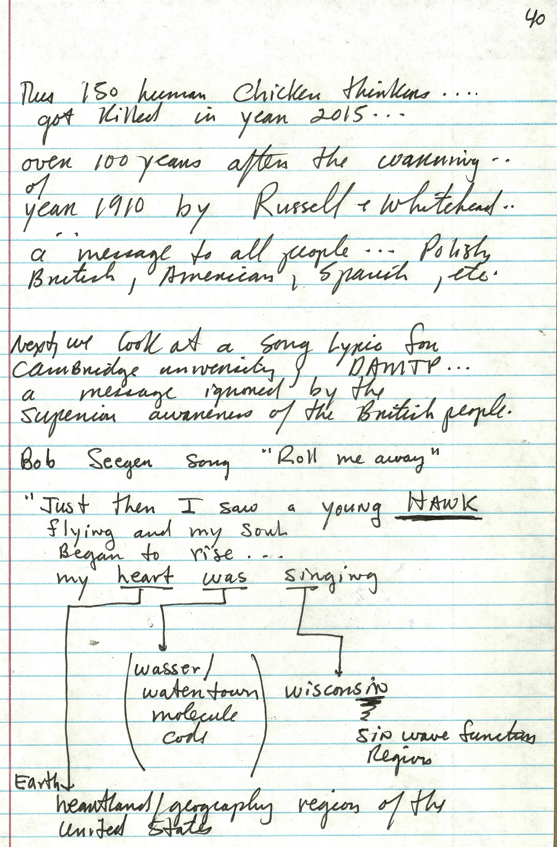 40
Thus 150 human Chicken thinkers ....
got killed in year 2015 ...
over 100 years after the warning ..
of
year 1910 by Russell & Whitehead ..
a message to all people ... Polish
British, American, Spanish, etc.
Next, we look at a song lyric for
Cambridge university, DAMTP ...
a message ignored by the
superior awareness of the British people.
Bob Seeger song "Roll me away"
"Just then I saw a young HAWK
flying and my soul
Began to rise ....
my heart was singing
wasser/
watertown
molecule
code
wisconsin
sin wave function
Region
Earth
heartland/geography region of the
United States